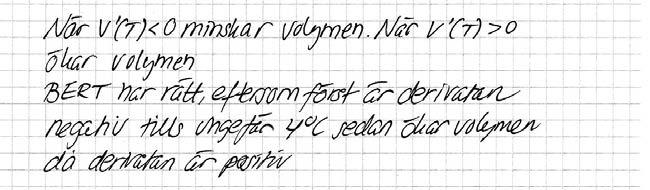 När V'(T)<0 minskar volymen. När V'(T)>0
ökar volymen
BERT har rätt, eftersom först är derivatan
negativ tills ungefär 4°C sedan ökar volymen
då derivatan är positiv